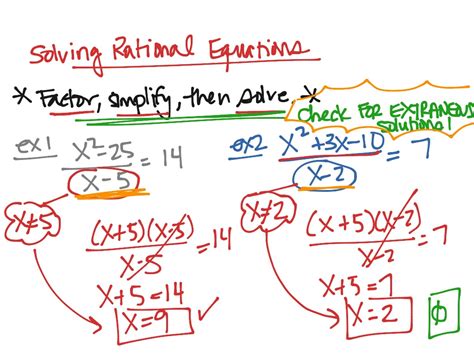 Solving Rational Equations
* Factor, simplify, then solve. *
check FOR EXTRANEOUS solutions!
ex1 x²-25 / x-5 = 14
x≠5
(x+5)(x-5) / x-5 = 14
x+5=14
x=9 ✓
ex2 x²+3x-10 / x-2 = 7
x≠2
(x+5)(x-2) / x-2 = 7
x+5=7
x=2 ∅